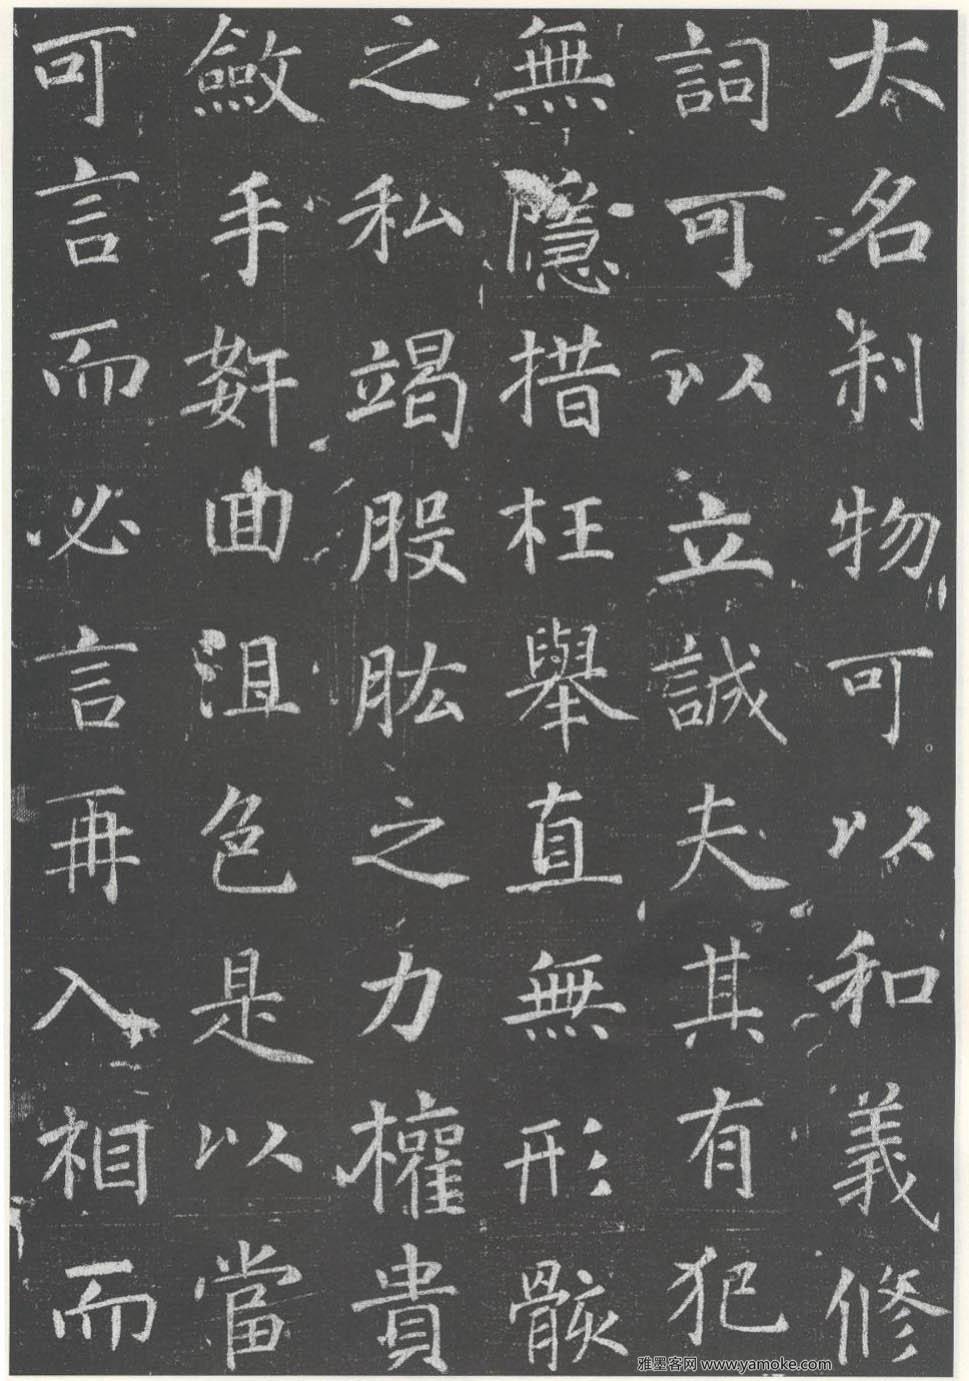 大名刹物可以和義修
詞可以立誠夫其有犯
無隱措枉舉直無形骸
之私竭股肱之力權貴
斂手姧回沮色是以當
可言而必言再入相而
雅墨客网 www.yamoke.com